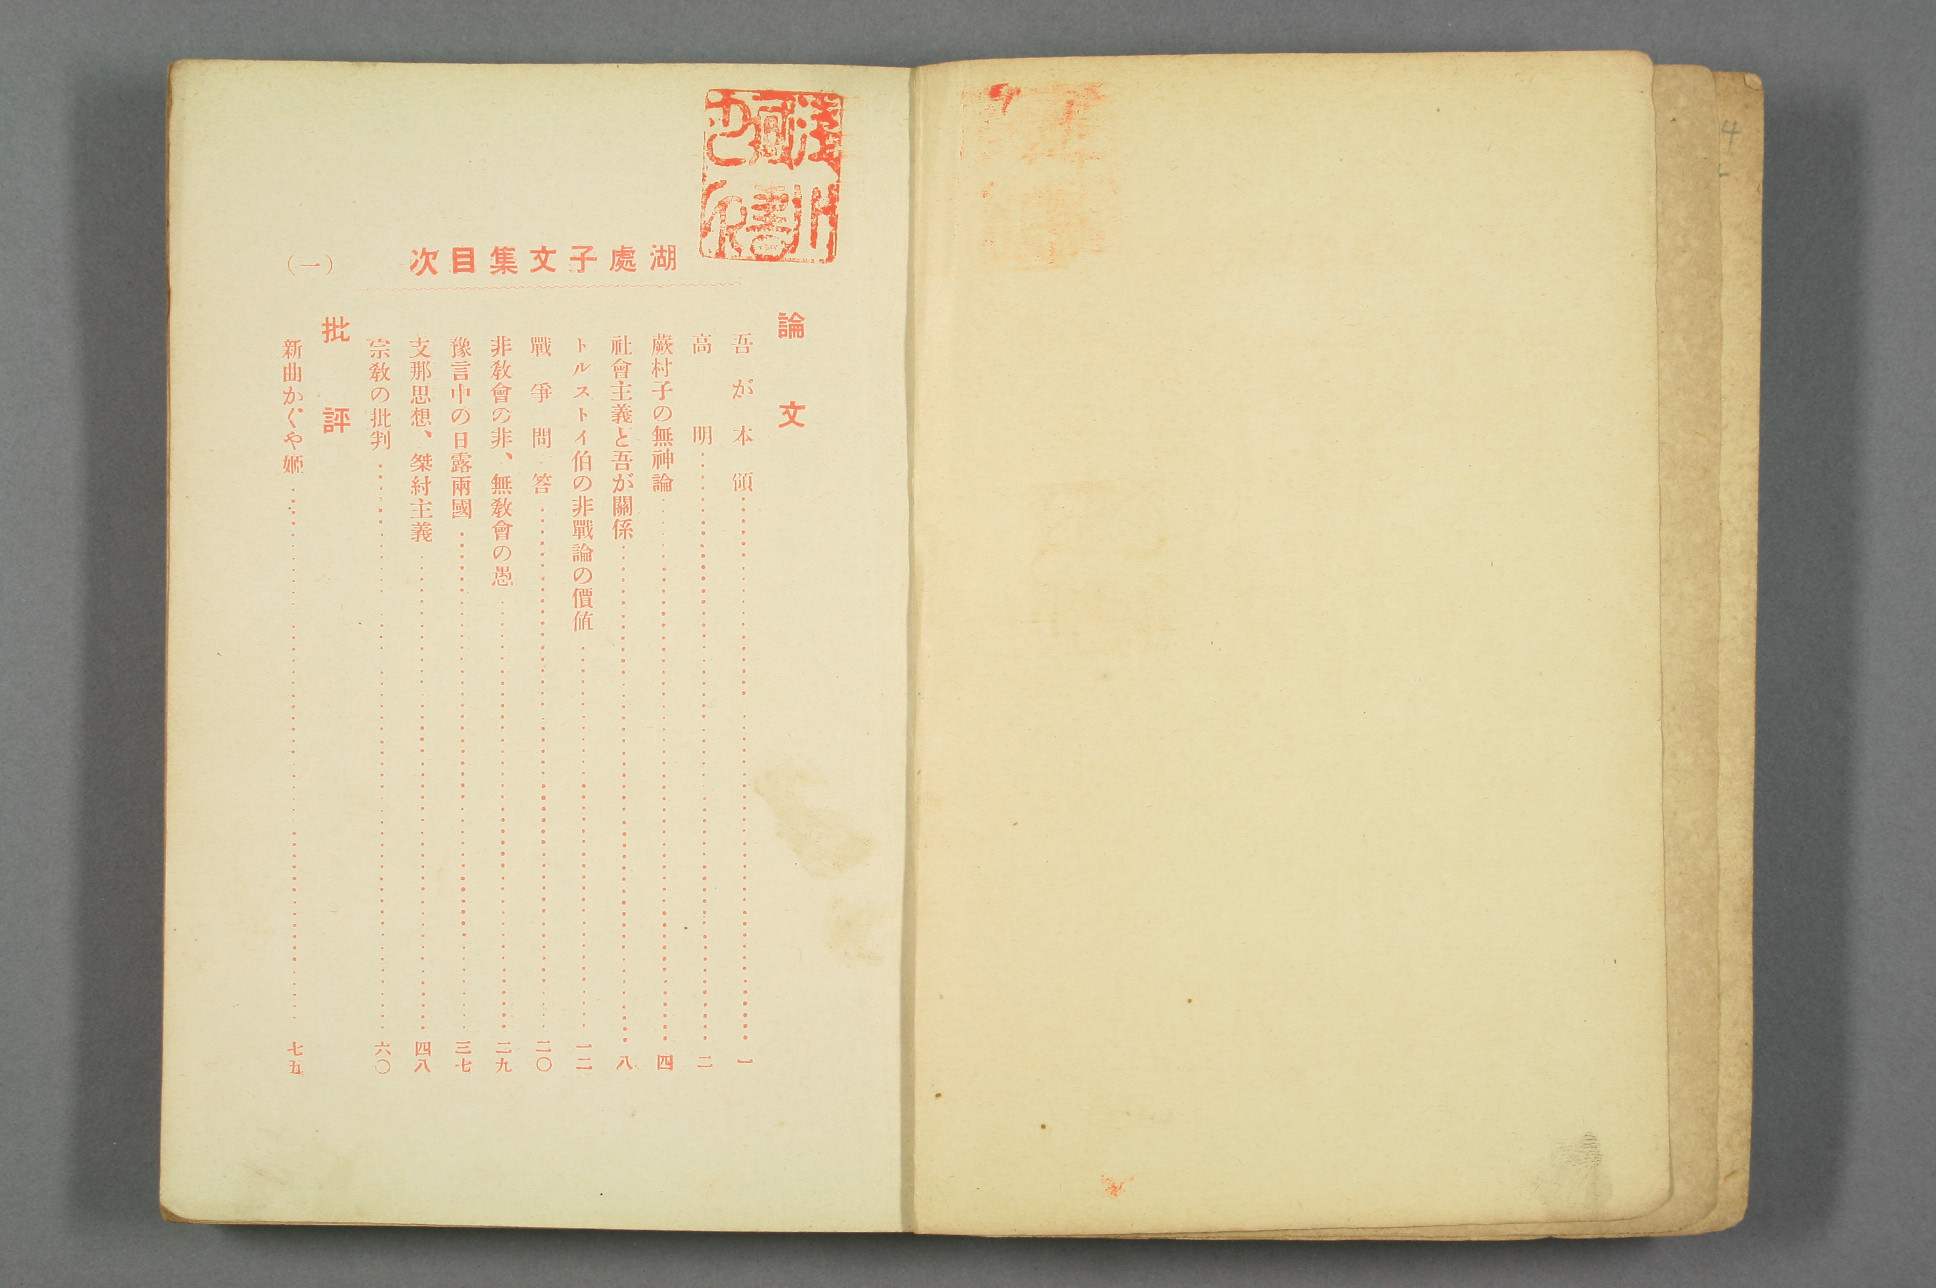 湖處子文集目次
(一)
論文
吾が本領 一
高明 二
蕨村子の無神論 四
社會主義と吾が關係 八
トルストイ伯の非戰論の價値 一二
戰爭問答 二〇
非敎會の非、無敎會の愚 二九
豫言中の日露兩國 三七
支那思想、桀紂主義 四八
宗敎の批判 六〇
批評
新曲かぐや姬 七五